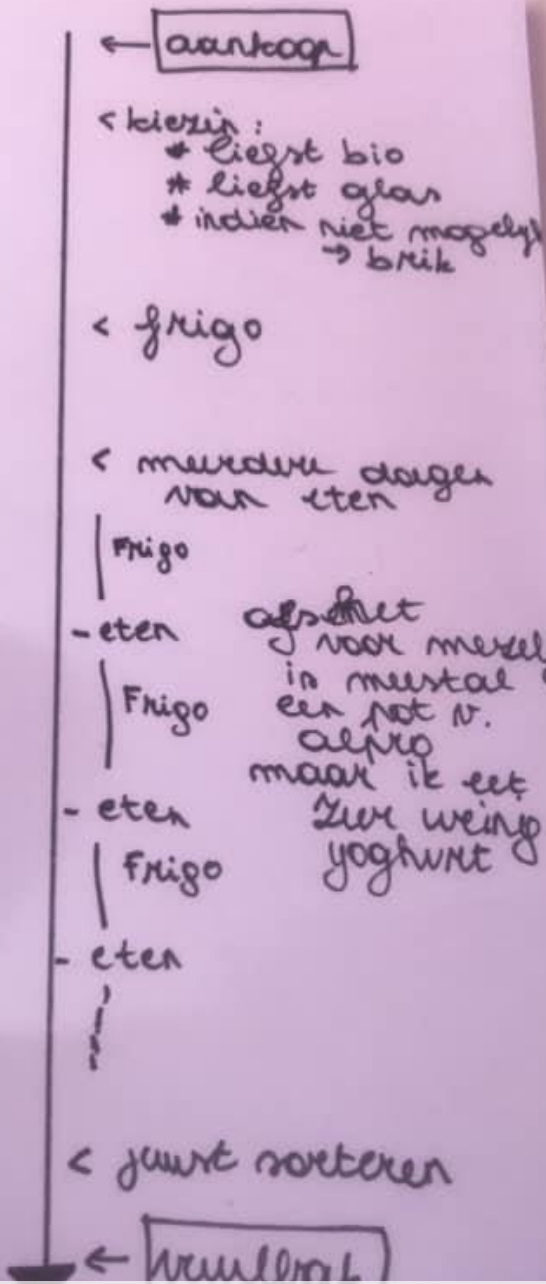 ← aankoop
< kiezen:
* liefst bio
* liefst glas
* indien niet mogelijk
→ brik
< frigo
< meerdere dagen
van eten
Frigo
- eten
Frigo
- eten
Frigo
- eten
voor mezel
in meestal
een pot v.
alpro
maar ik eet
zeer weinig
yoghurt
< juist sorteren
← vuilbak